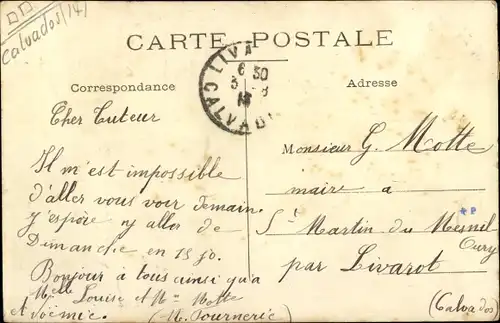 Calvados (14)
CARTE POSTALE
Correspondance
Adresse
LIVA
6 30
3 - 8
CALVADOS
Cher Tuteur
Il m'est impossible
d'aller vous voir demain.
J'espère y aller de
Dimanche en 15 jo.
Bonjour à tous ainsi qu'à
Melle Louise et Mme Motte
et Noëmie. (M. Fournerie)
Monsieur G. Motte
maire à
St Martin du Mesnil
Oury
par Livarot
(Calvados)